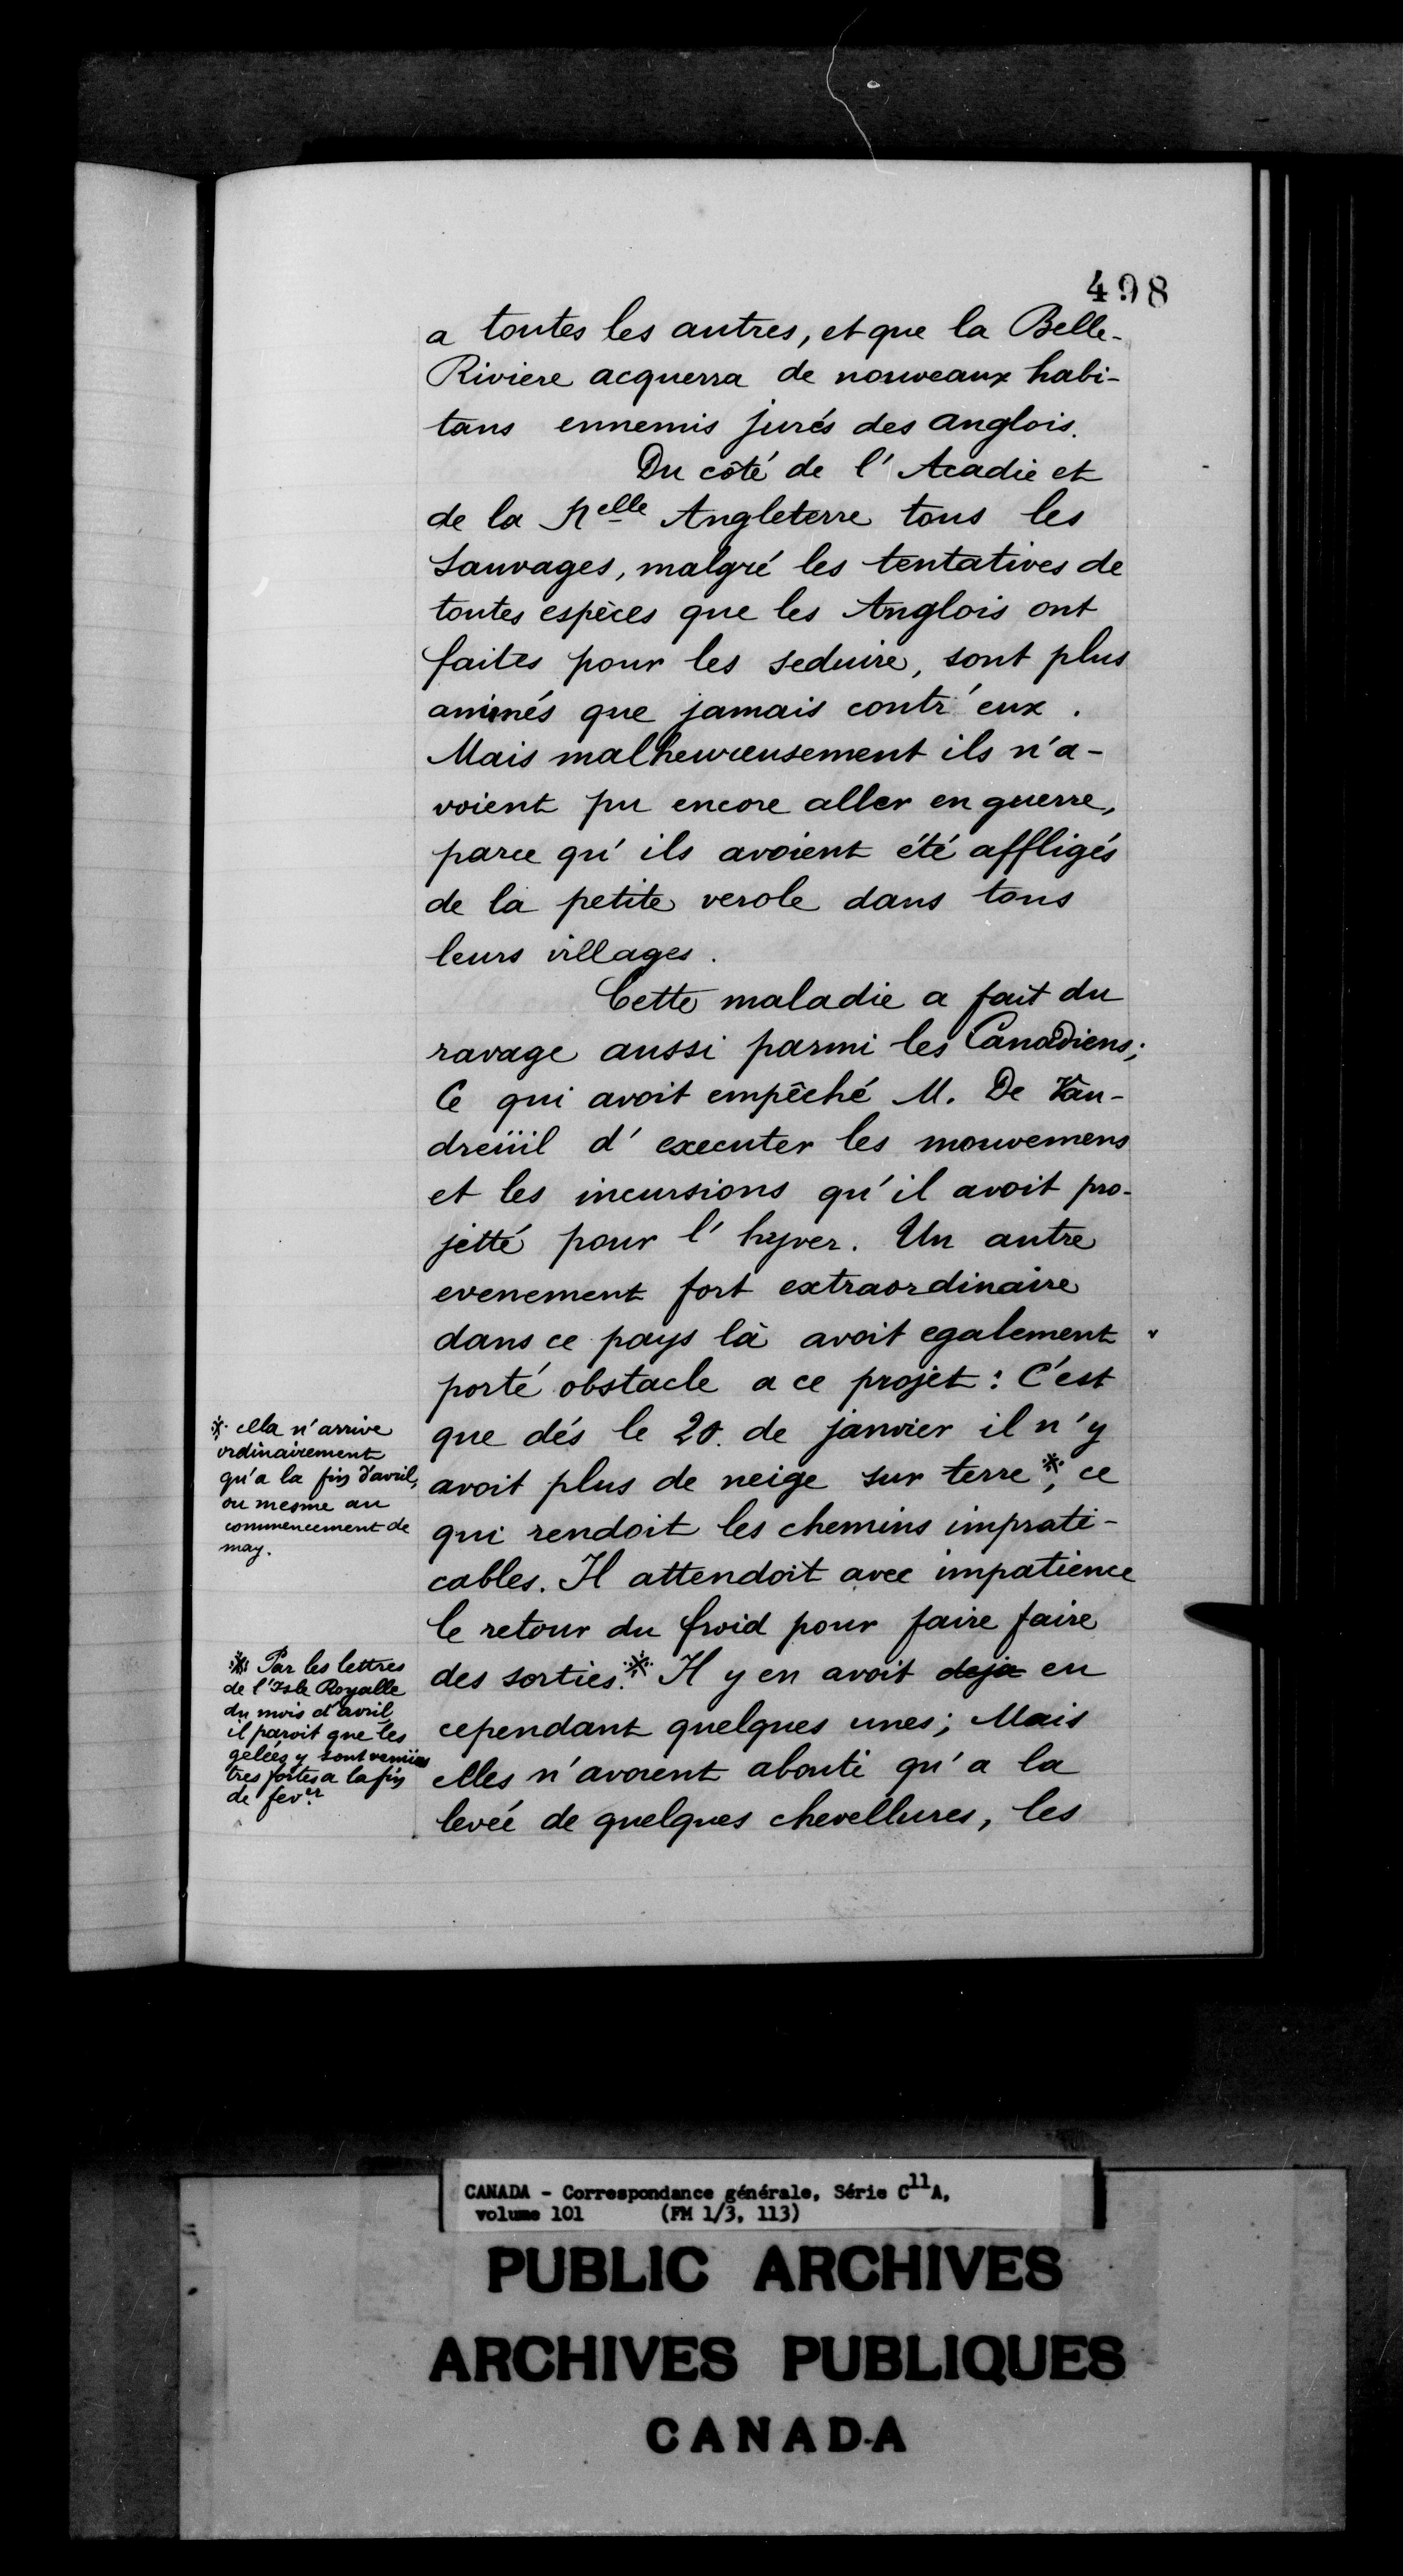 498
a toutes les autres, et que la Belle-
Riviere acquerra de nouveaux habi-
tans ennemis jurés des anglois.
Du côté de l'Acadie et
de la Nelle Angleterre tous les
Sauvages, malgré les tentatives de
toutes espèces que les Anglois ont
faites pour les seduire, sont plus
animés que jamais contr'eux.
Mais malheureusement ils n'a-
voient pu encore aller en guerre,
parce qu'ils avoient été affligés
de la petite verole dans tous
leurs villages.
Cette maladie a fait du
ravage aussi parmi les Canadiens;
Ce qui avoit empêché M. De Vau-
dreüil d'executer les mouvemens
et les incursions qu'il avoit pro-
jetté pour l'hyver. Un autre
evenement fort extraordinaire
dans ce pays là avoit egalement
porté obstacle a ce projet: C'est
que dés le 20. de janvier il n'y
avoit plus de neige sur terre*, ce
qui rendoit les chemins imprati-
cables. Il attendoit avec impatience
le retour du froid pour faire faire
des sorties.* Il y en avoit deja eu
cependant quelques unes; Mais
elles n'avoient abouti qu'a la
levée de quelques chevellures, les
* cela n'arrive
ordinairement
qu'a la fin d'avril,
ou mesme au
commencement de
may.
* Par les lettres
de l'Isle Royalle
du mois d'avril
il paroit que les
gelées y sont venües
tres fortes a la fin
de fever
CANADA - Correspondance générale, Série C11A,
volume 101 (FM 1/3, 113)
PUBLIC ARCHIVES
ARCHIVES PUBLIQUES
CANADA